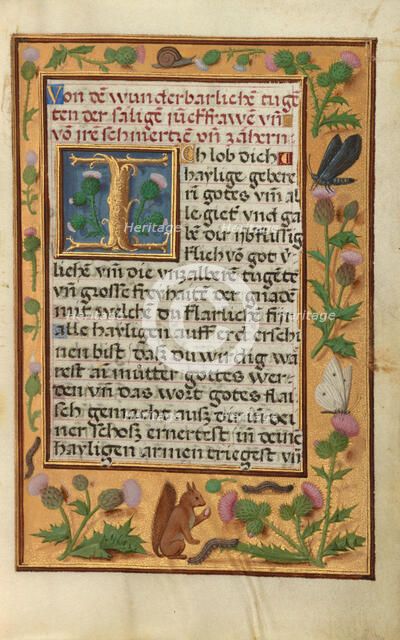 Von dē wunderbarlichē tugē
ten der sälige jūcffrawē vn̄
vō jrē schmertzē vn̄ zähern
Ich lob dich
haylige gebere
rin gotes vm̄ al
le giet vnd ga
be dir
flich vō got v̄
lichē vm̄ die vnzalberē tugētē
vn̄ grosse freyhaitē der gnadē
mit welchē du
alle hayligen auff erd erschi
nen bist Das du wirdig wa
rest ain mütter gottes wer
den vm̄ das wort gotes flai
sch gemacht ausz der in dei
ner schosz ernertest in deinē
hayligen armen triegest vn̄
Heritage
Heritage
Heritage